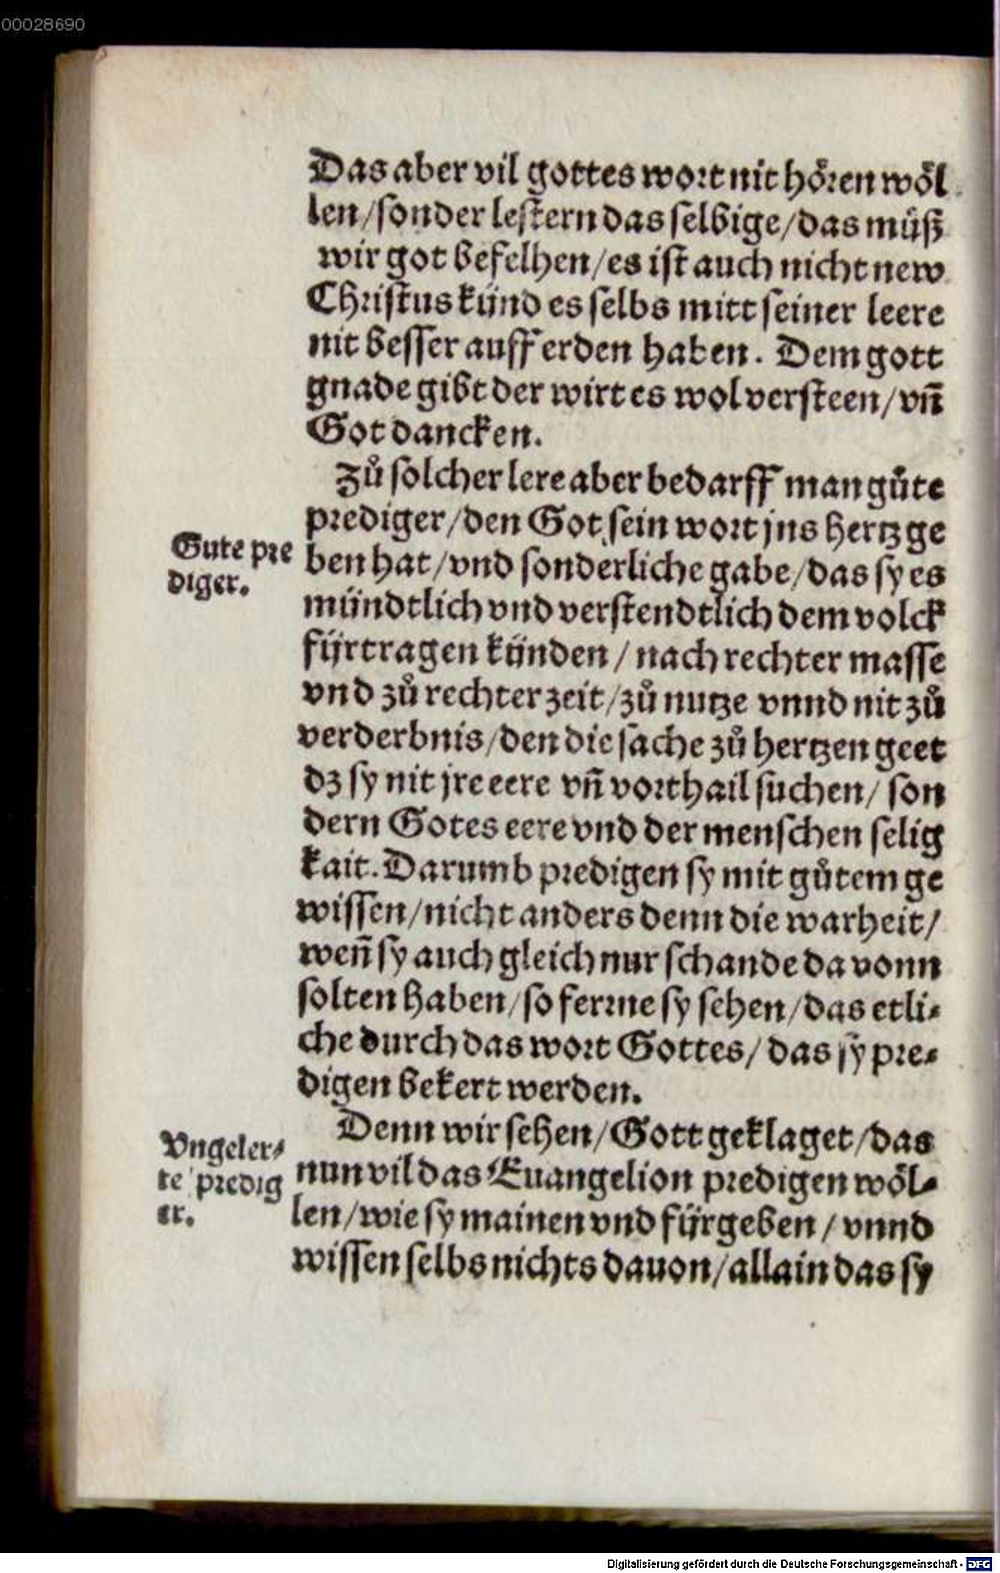 00028690
Das aber vil gottes wort nit hören wöl
len/sonder lestern das selbige/das müß
wir got befelhen/es ist auch nicht new
Christus künd es selbs mitt seiner leere
nit besser auff erden haben. Dem gott
gnade gibt der wirt es wol versteen/vñ
Got dancken.
Zů solcher lere aber bedarff man gůte
prediger/den Got sein wort jns hertz ge
Gute pre
diger.
ben hat/vnd sonderliche gabe/das sy es
mündtlich vnd verstendtlich dem volck
fürtragen künden/nach rechter masse
vnd zů rechter zeit/zů nutze vnnd nit zů
verderbnis/den die sache zů hertzen geet
dz sy nit jre eere vñ vorthail suchen/son
dern Gotes eere vnd der menschen selig
kait. Darumb predigen sy mit gůtem ge
wissen/nicht anders denn die warheit/
weñ sy auch gleich nur schande da vonn
solten haben/so ferrne sy sehen/das etli⸗
che durch das wort Gottes/das sy pre⸗
digen bekert werden.
Denn wir sehen/Gott geklaget/das
Vngeler⸗
te predig
er.
nun vil das Euangelion predigen wöl⸗
len/wie sy mainen vnd fürgeben/vnnd
wissen selbs nichts dauon/allain das sy
Digitalisierung gefördert durch die Deutsche Forschungsgemeinschaft - DFG